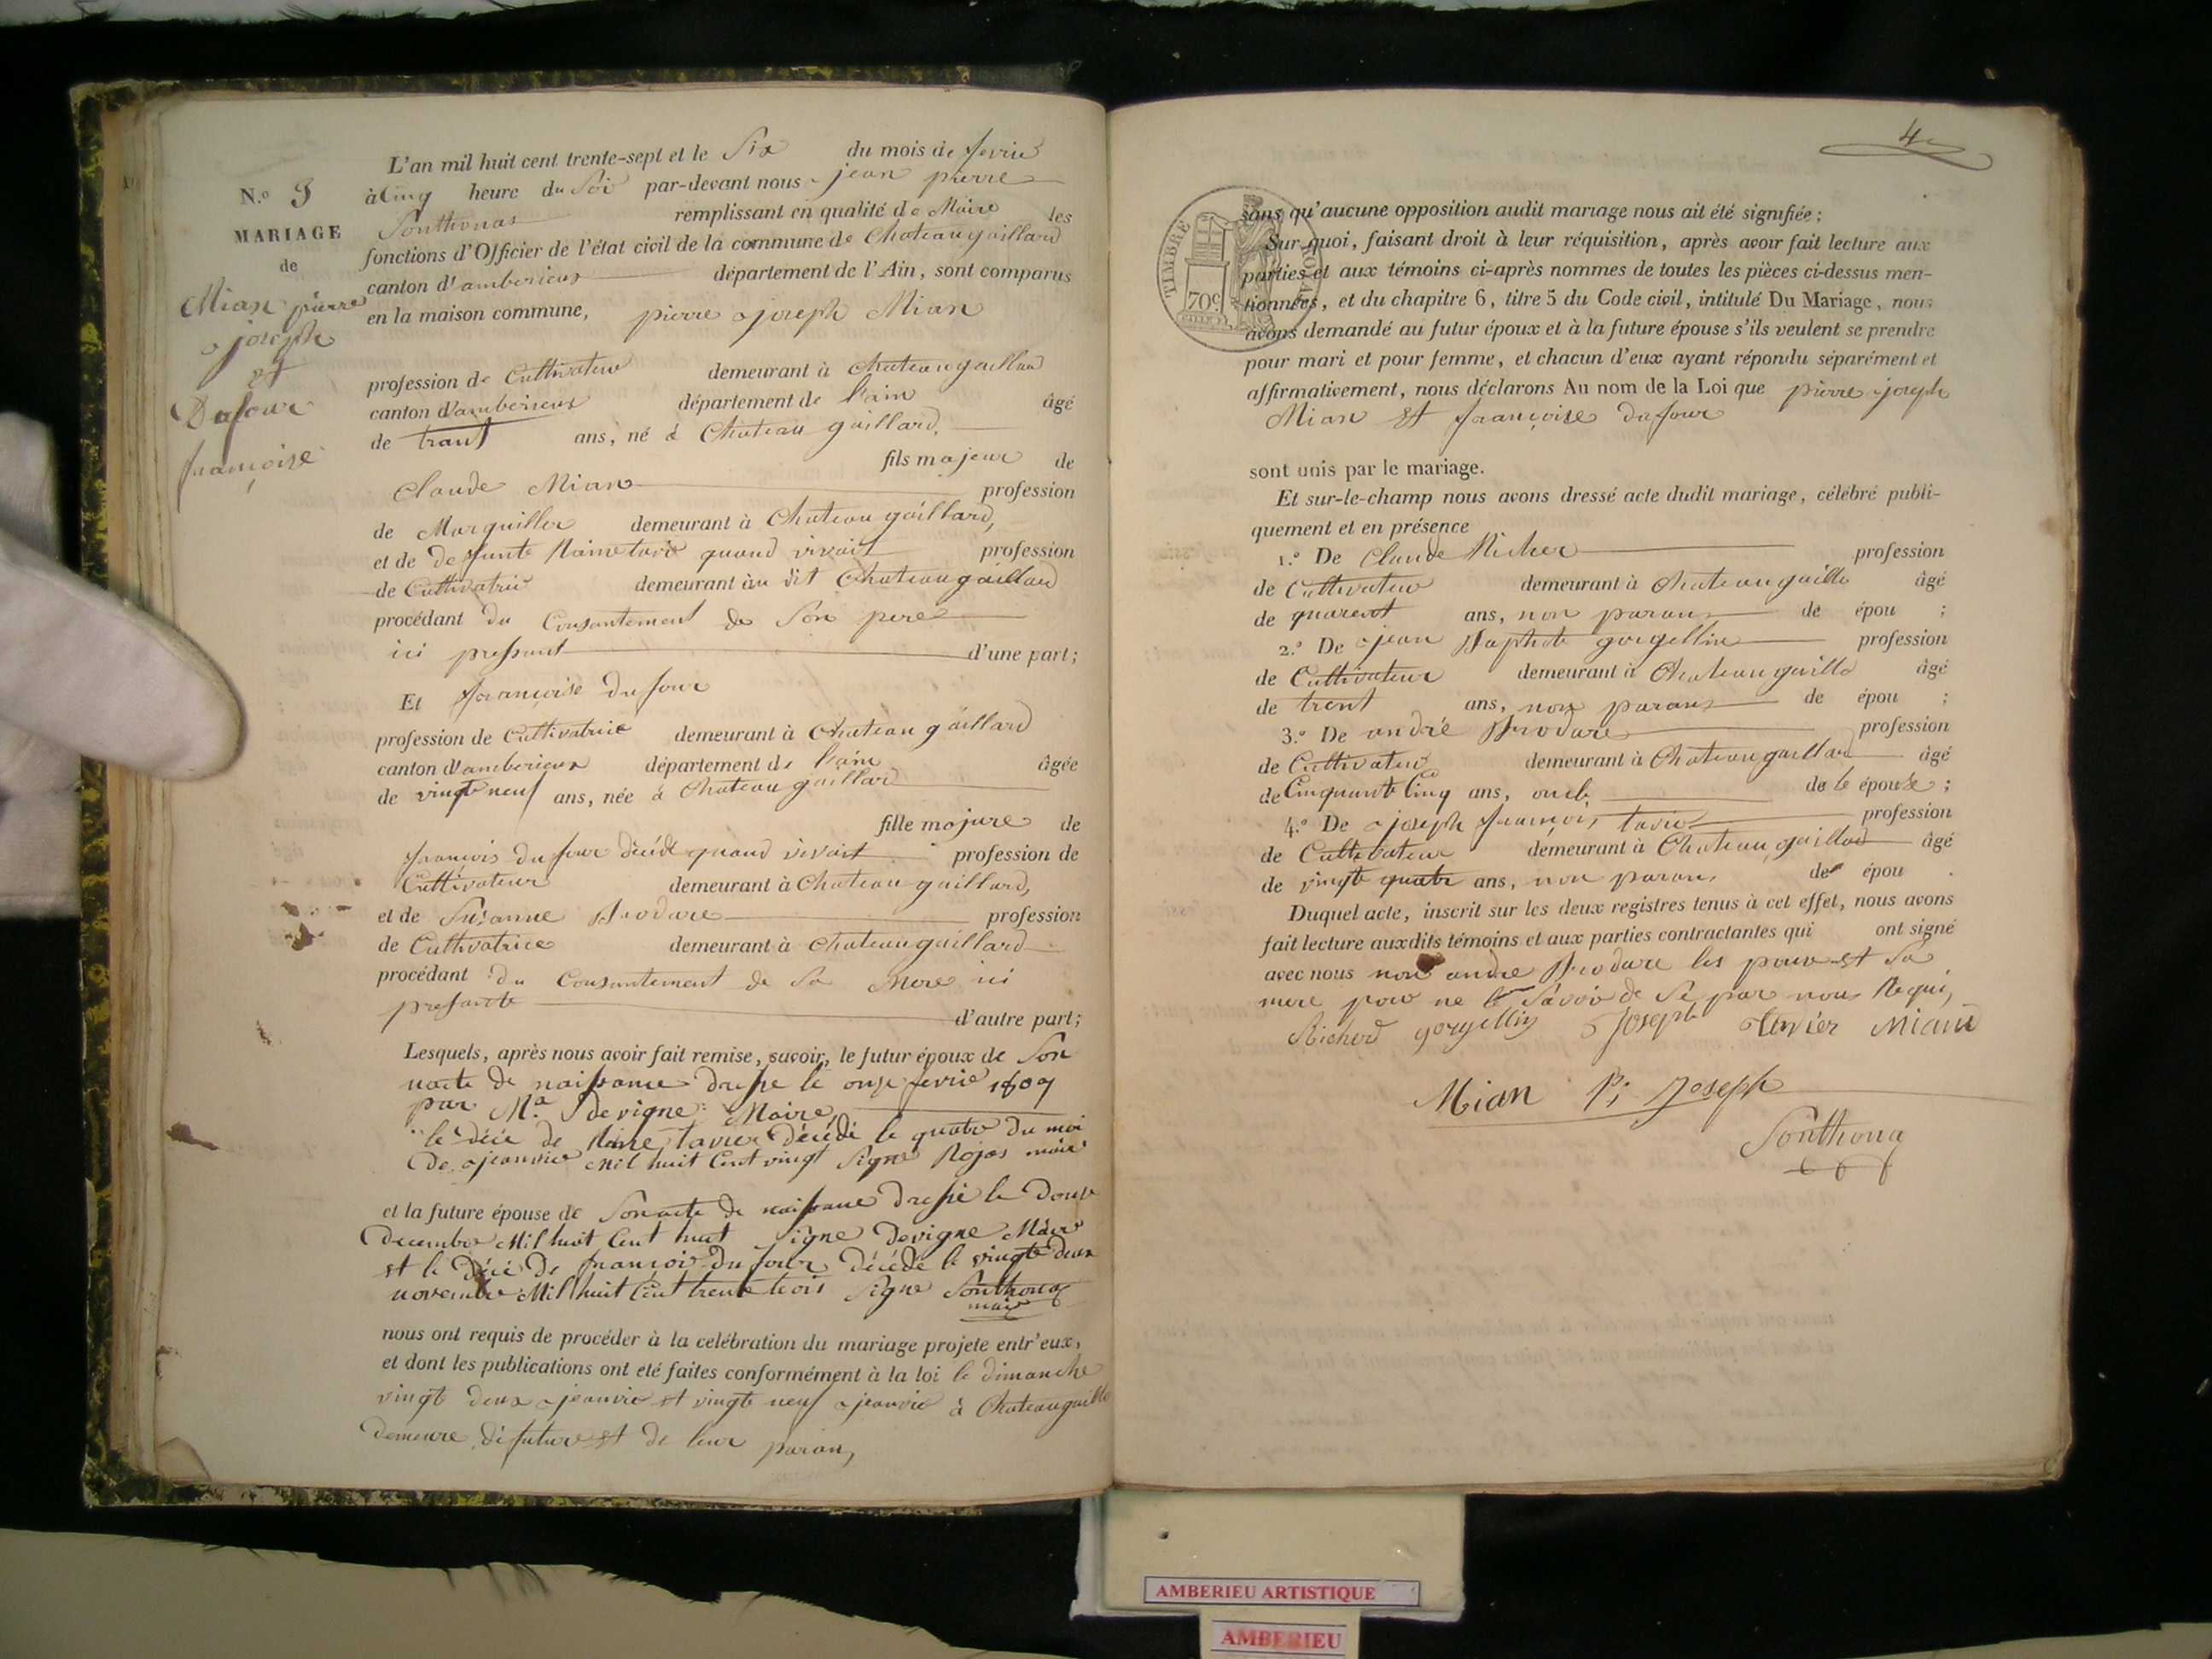 L'an mil huit cent trente-sept et le Six du mois de fevrié
N.º 3
à Cinq heure du Soir par-devant nous jean pierre
MARIAGE
Sonthonas remplissant en qualité de Maire les
de
fonctions d'Officier de l'état civil de la commune de Chateaugaillard
Mian pierre
joseph
et
Dufour
françoise
canton d'amberieux département de l'Ain, sont comparus
en la maison commune, pierre joseph Mian
profession de Cultivateur demeurant à Chateaugaillard
canton d'amberieux département de l'ain âgé
de trant ans, né à Chateau gaillard,
fils majeur de
Claude Mian profession
de Marguiller demeurant à Chateau gaillard,
et de defunte quand vivait profession
de Cultivatrice demeurant au dit Chateaugaillard
procédant du Consantement de Son pere
ici pressant d'une part;
Et françoise Dufour
profession de Cultivatrice demeurant à Chateau gaillard
canton d'amberieux département de l'ain âgée
de vingt neuf ans, née à Chateau gaillard
fille majure de
françois Dufour décédé quand vivait profession de
Cultivateur demeurant à Chateau gaillard,
et de Suzanne Brodare profession
de Cultivatrice demeurant à Chateaugaillard
procédant du Consantement de Sa Mere ici
presante d'autre part;
Lesquels, après nous avoir fait remise, savoir, le futur époux de Son
nacte de naissance dressé le onze fevrié 1807
par Mr. devigne Maire,
le déce de décédé le quatre du moi
De jeanvier Mil huit Cent vingt Signé Rojas maire
et la future épouse de Son acte de naissance dressé le Douze
Decembre Mil huit Cent huit Signe Devigne Maire
et le déce De françois Dufour décédé le vingt deux
novembre Mil huit Cent trente trois Signe Sonthona
maire
nous ont requis de procéder à la celébration du mariage projete entr'eux,
et dont les publications ont eté faites conformément à la loi le dimanche
vingt deux jeanvié et vingt neuf jeanvié à Chateaugaillard
Demeure de futur et de leur paran,
4
TIMBRE ROYAL
70c
sans qu'aucune opposition audit mariage nous ait été signifiée;
Sur quoi, faisant droit à leur réquisition, après avoir fait lecture aux
parties et aux témoins ci-après nommes de toutes les pièces ci-dessus men-
tionnées, et du chapitre 6, titre 5 du Code civil, intitulé Du Mariage, nous
avons demandé au futur époux et à la future épouse s'ils veulent se prendre
pour mari et pour femme, et chacun d'eux ayant répondu séparément et
affirmativement, nous déclarons Au nom de la Loi que pierre joseph
Mian et françoise dufour
sont unis par le mariage.
Et sur-le-champ nous avons dressé acte dudit mariage, célébré publi-
quement et en présence
1.º De Claude Richer profession
de Cultivateur demeurant à Chateaugailla âgé
de quarent ans, non parans de épou ;
2.º De jean Baptiste gorgellin profession
de Cultivateur demeurant à Chateaugailla âgé
de trent ans, non parans de épou ;
3.º De andré Brodare profession
de Cultivateur demeurant à Chateaugaillard âgé
de Cinquante Cinq ans, oncle de le épouse ;
4.º De joseph françois tavier profession
de Cultivateur demeurant à Chateau gaillard âgé
de vingte quatre ans, non paran, de épou .
Duquel acte, inscrit sur les deux registres tenus à cet effet, nous avons
fait lecture auxdits témoins et aux parties contractantes qui ont signé
avec nous non andre Brodare les pouse et Sa
mere pour ne le Savoir de Se par nous Requi,
Richerd gorgellin Joseph tavier Mian
Mian Pi Joseph
Sonthona
AMBERIEU ARTISTIQUE
AMBERIEU